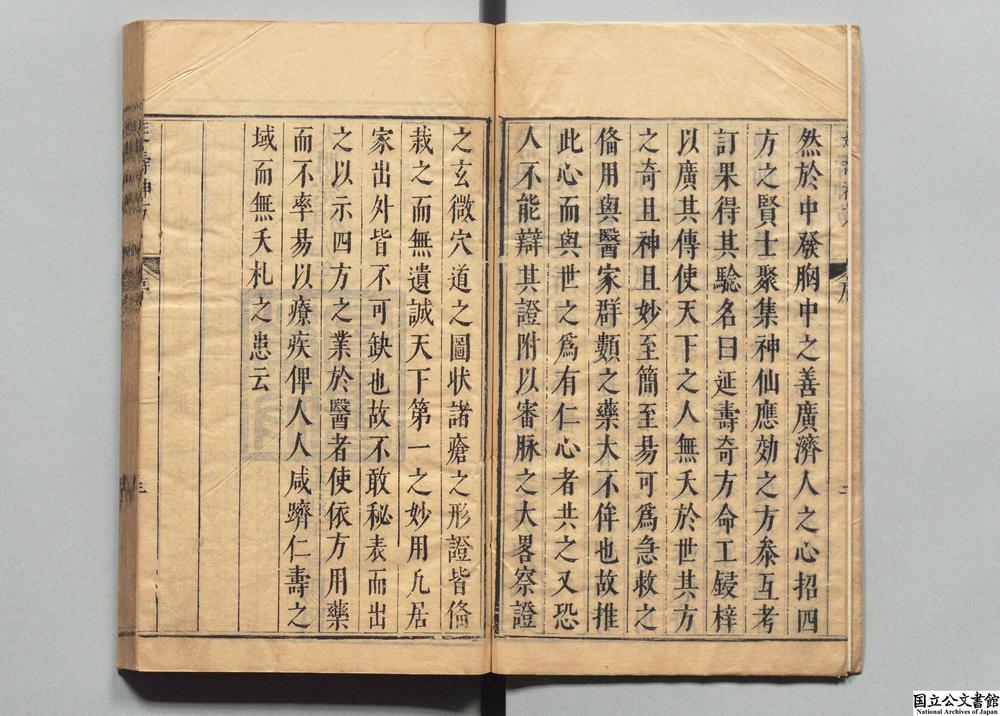 然於中發胸中之善廣濟人之心招四
方之賢士聚集神仙應効之方叅互考
訂果得其驗名曰延壽奇方命工鋟梓
以廣其傳使天下之人無夭於世其方
之奇且神且妙至簡至易可爲急救之
俻用與醫家群數之藥大不侔也故推
此心而與世之爲有仁心者共之又恐
人不能辯其證附以審脉之大畧察證
之玄微穴道之圖状諸瘡之形證皆俻
栽之而無遺誠天下第一之妙用凢居
家出外皆不可缺也故不敢秘表而出
之以示四方之業於醫者使依方用藥
而不率易以療疾俾人人咸躋仁壽之
域而無夭札之患云
延壽神方
序
三
国立公文書館
National Archives of Japan